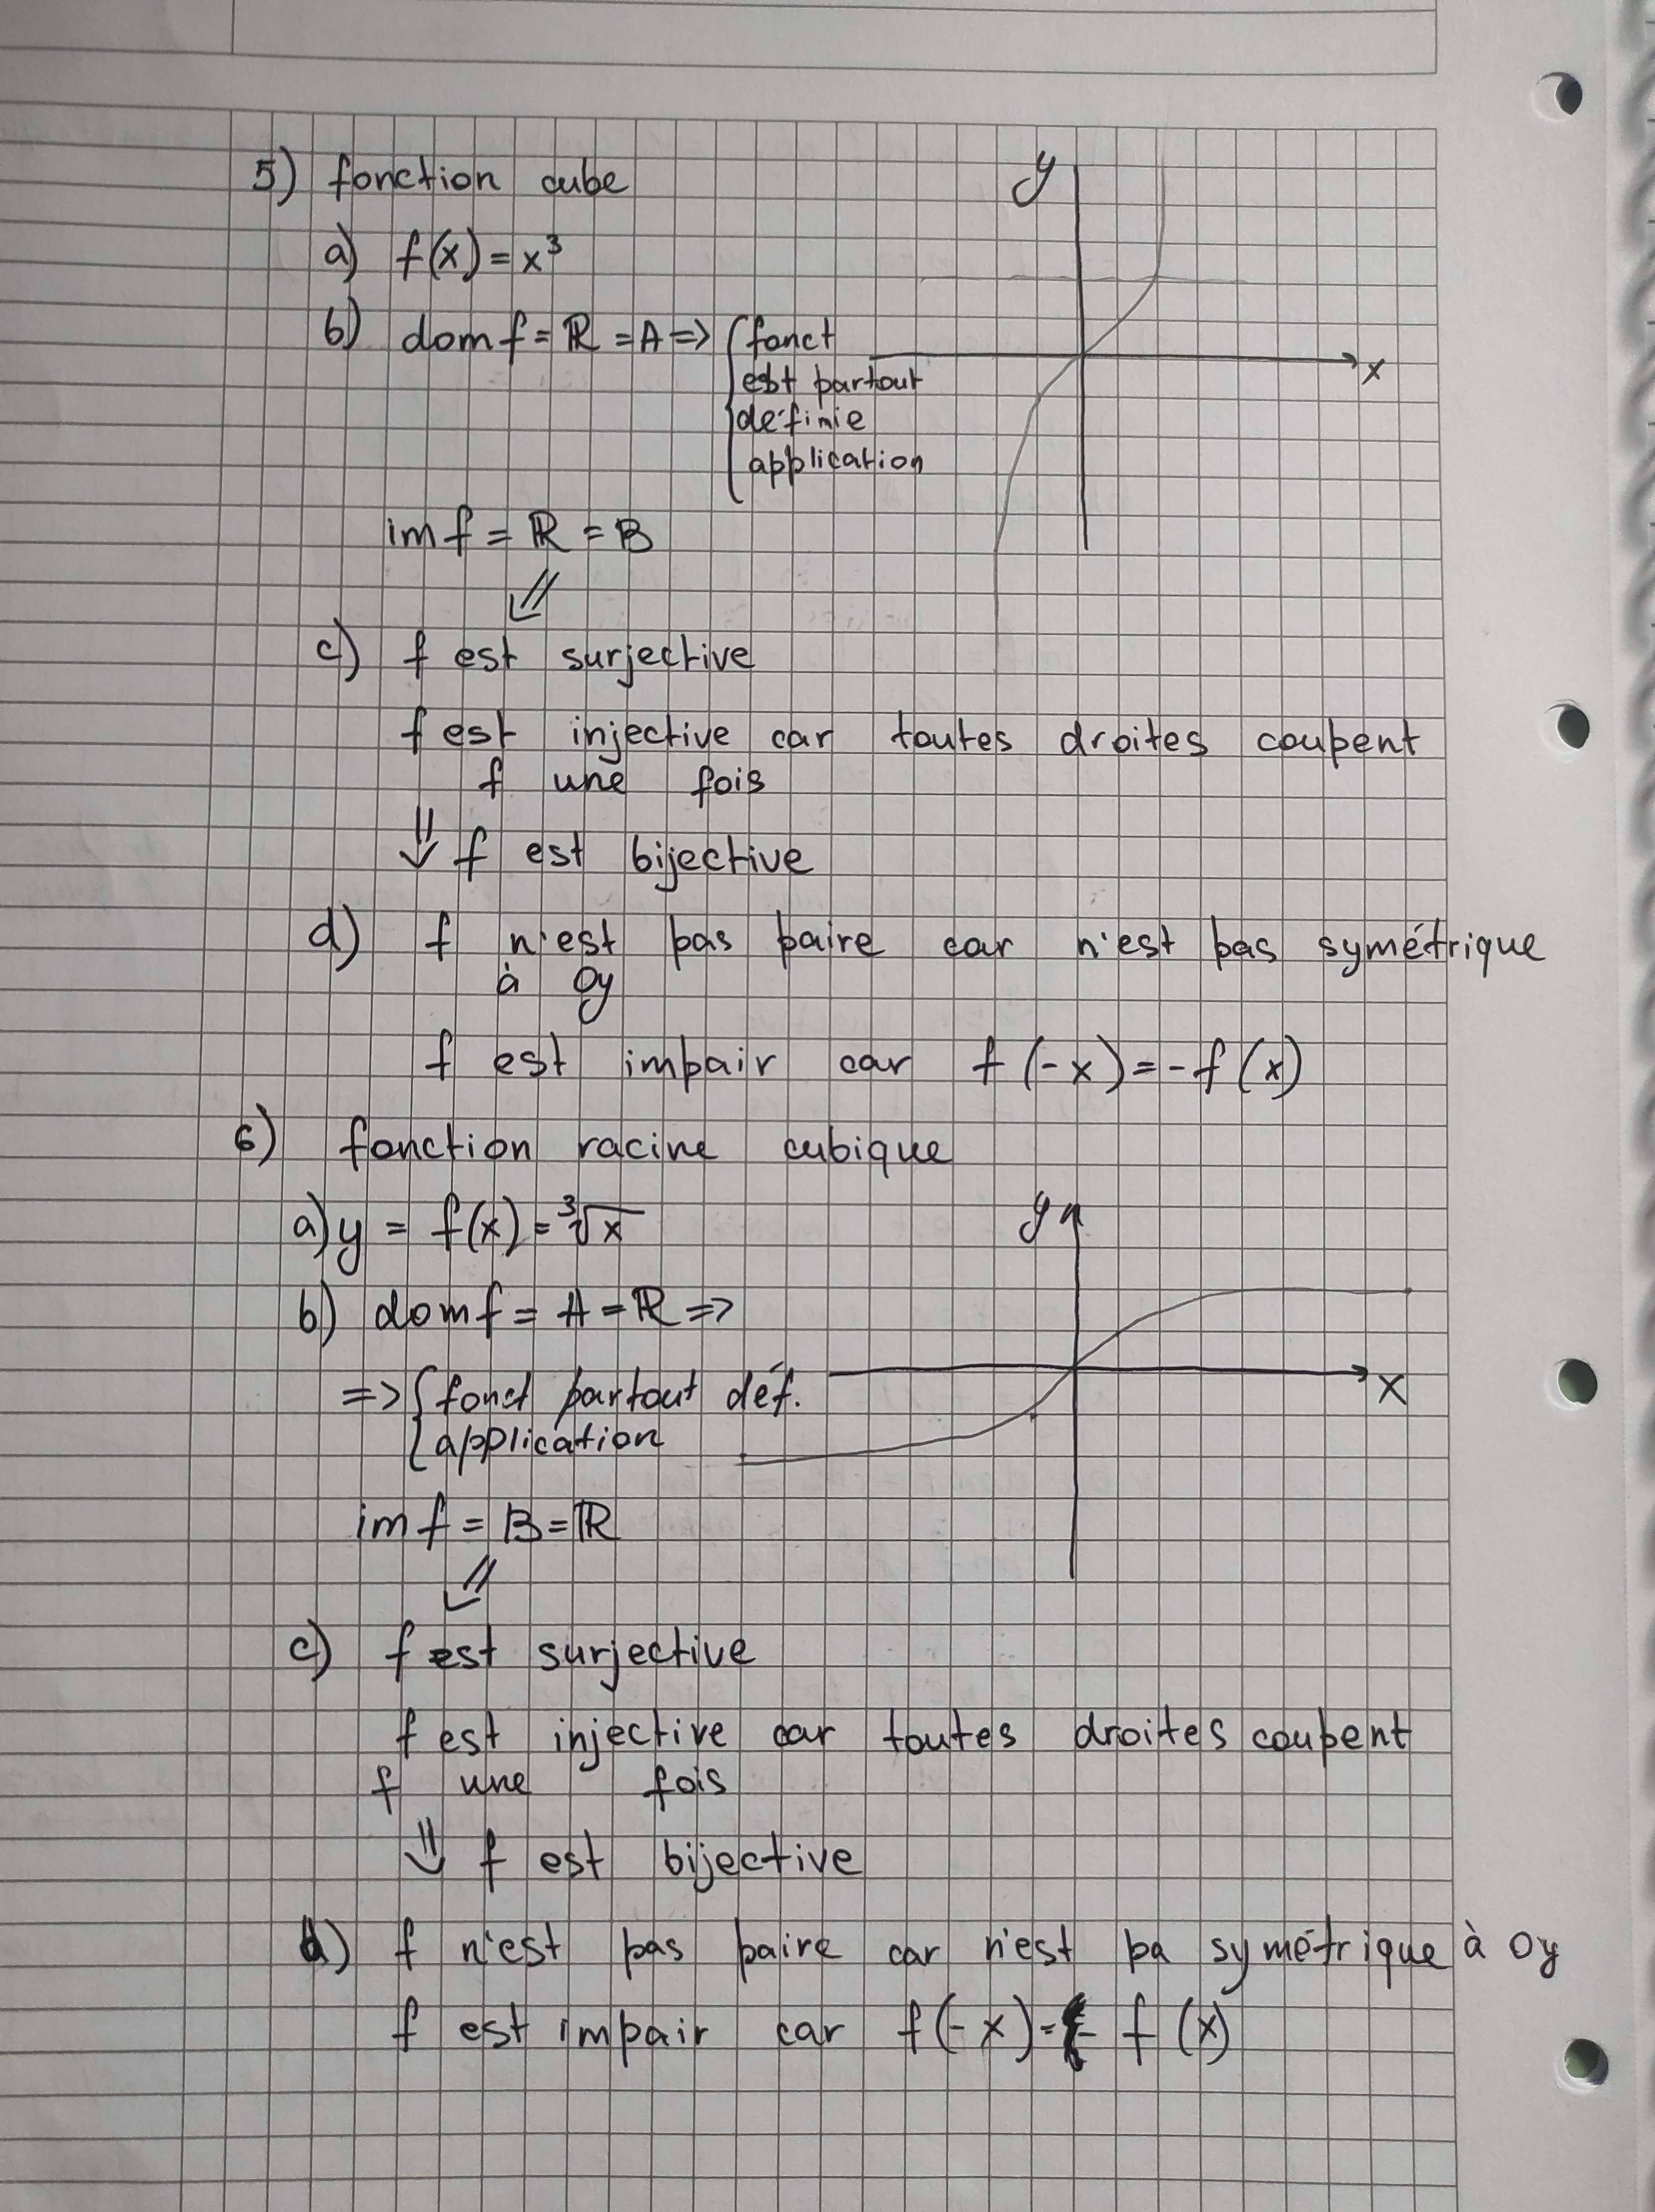 5) fonction cube
y
a) f(x) = x³
b) dom f = ℝ = A => { fonct
est partout
définie
application
x
im f = ℝ = B
⇓
c) f est surjective
f est injective car toutes droites coupent
f une fois
⇓ f est bijective
d) f n'est pas paire car n'est pas symétrique
à Oy
f est impair car f(-x) = -f(x)
6) fonction racine cubique
a) y = f(x) = ³√x
y
b) dom f = A = ℝ =>
=> { fonct partout déf.
application
x
im f = B = ℝ
⇓
c) f est surjective
f est injective car toutes droites coupent
f une fois
⇓ f est bijective
d) f n'est pas paire car n'est pa symétrique à Oy
f est impair car f(-x) = - f(x)